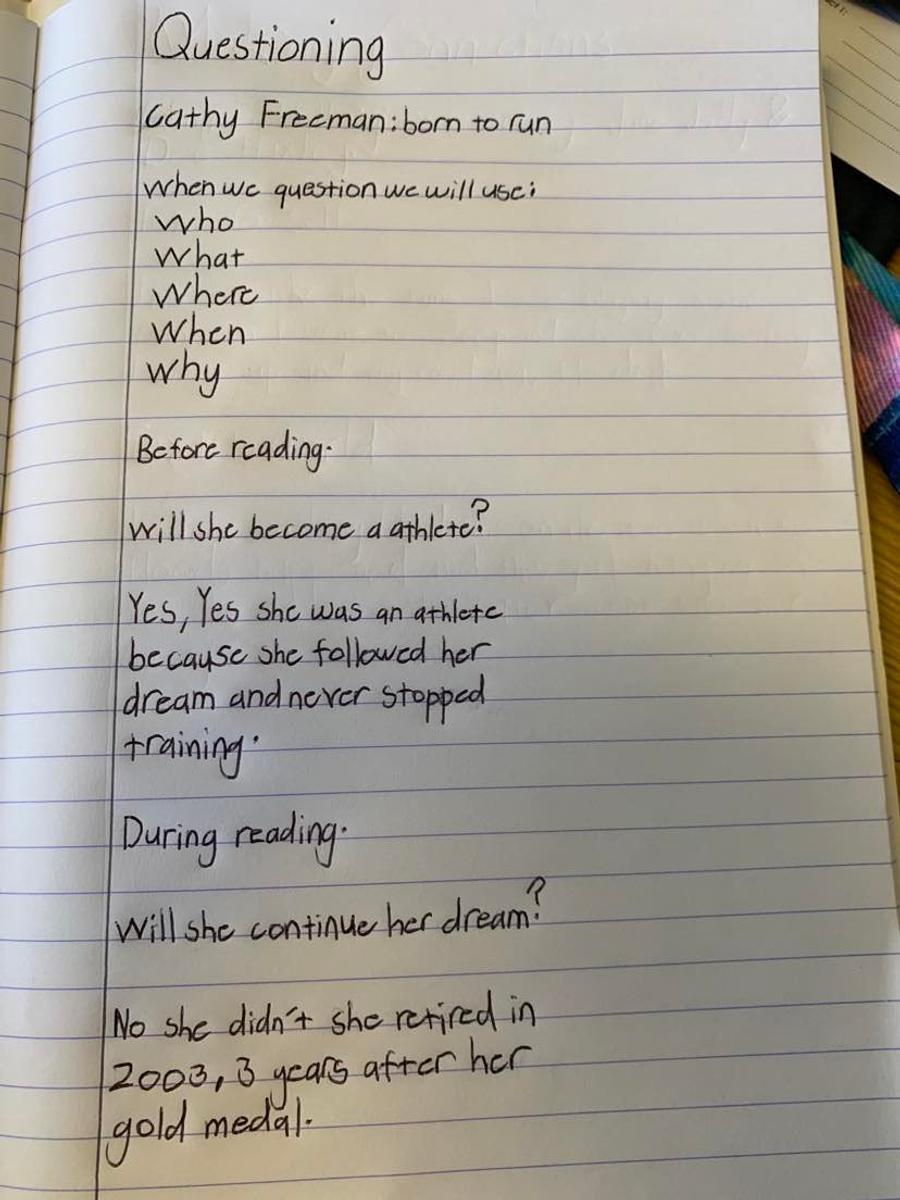 Questioning
Cathy Freeman: born to run
When we question we will use:
Who
What
Where
When
Why
Before reading.
Will she become a athlete?
Yes, Yes she was an athlete
because she followed her
dream and never stopped
training.
During reading.
Will she continue her dream?
No she didn't she retired in
2003, 3 years after her
gold medal.